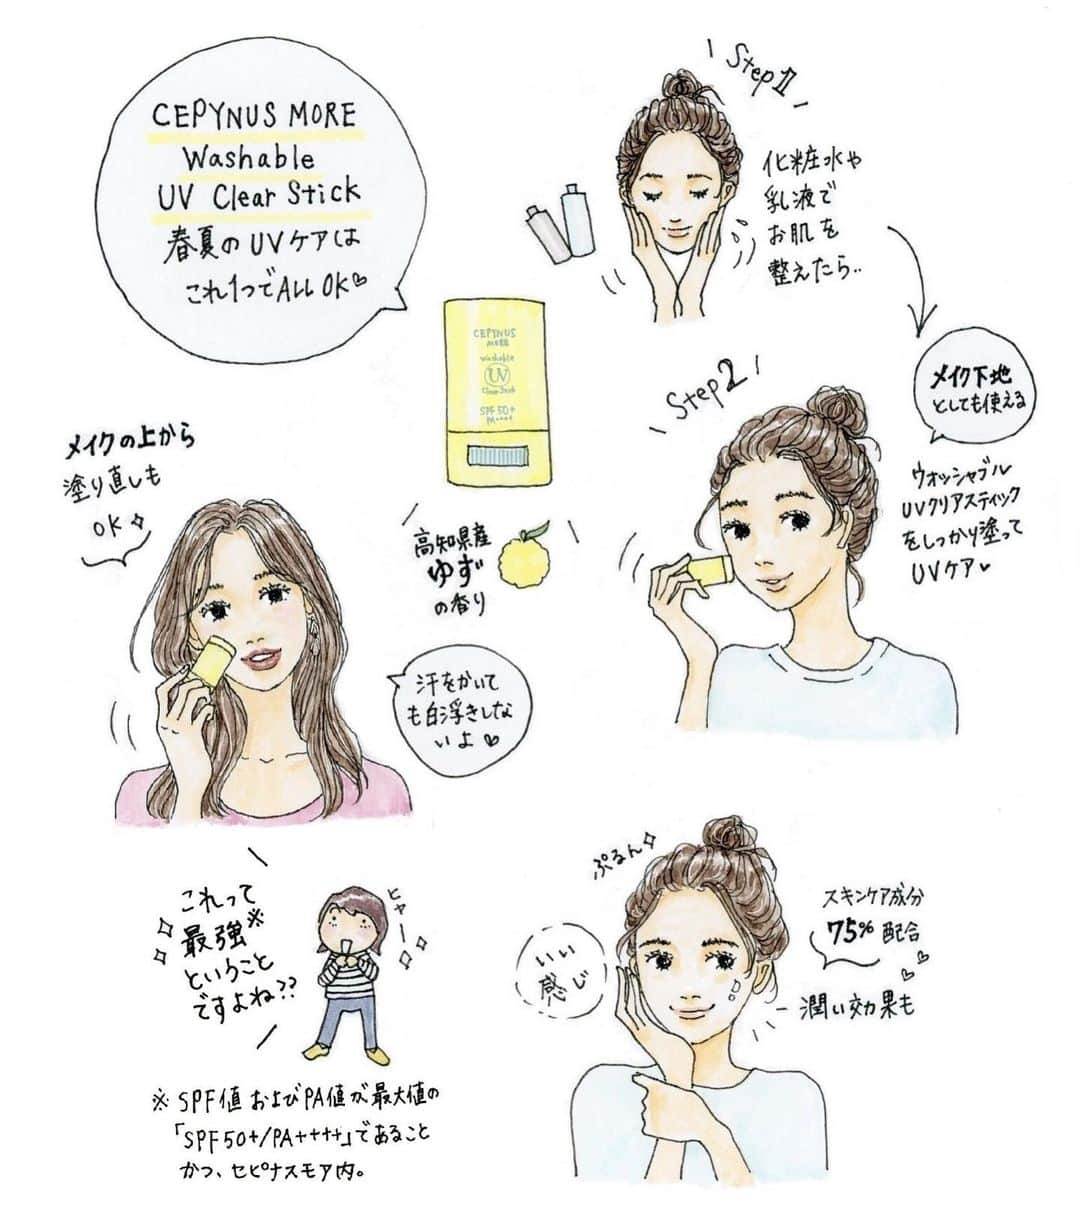 CEPYNUS MORE
Washable
UV Clear Stick
春夏のUVケアは
これ1つでALL OK♡
\ Step1 /
化粧水や
乳液で
お肌を
整えたら..
CEPYNUS
MORE
washable
UV
Clear Stick
SPF 50+
PA++++
\ Step2 /
メイク下地
としても使える
ウォッシャブル
UVクリアスティック
をしっかり塗って
UVケア♥
メイクの上から
塗り直しも
OK✧
高知県産
ゆず
の香り
汗をかいて
も白浮きしな
いよ♥
これって
最強※
ということ
ですよね??
ヒャー
※ SPF値およびPA値が最大値の
「SPF50+/PA++++」であること
かつ、セピナスモア内。
ぷるん✧
いい
感じ
スキンケア成分
75%配合
潤い効果も